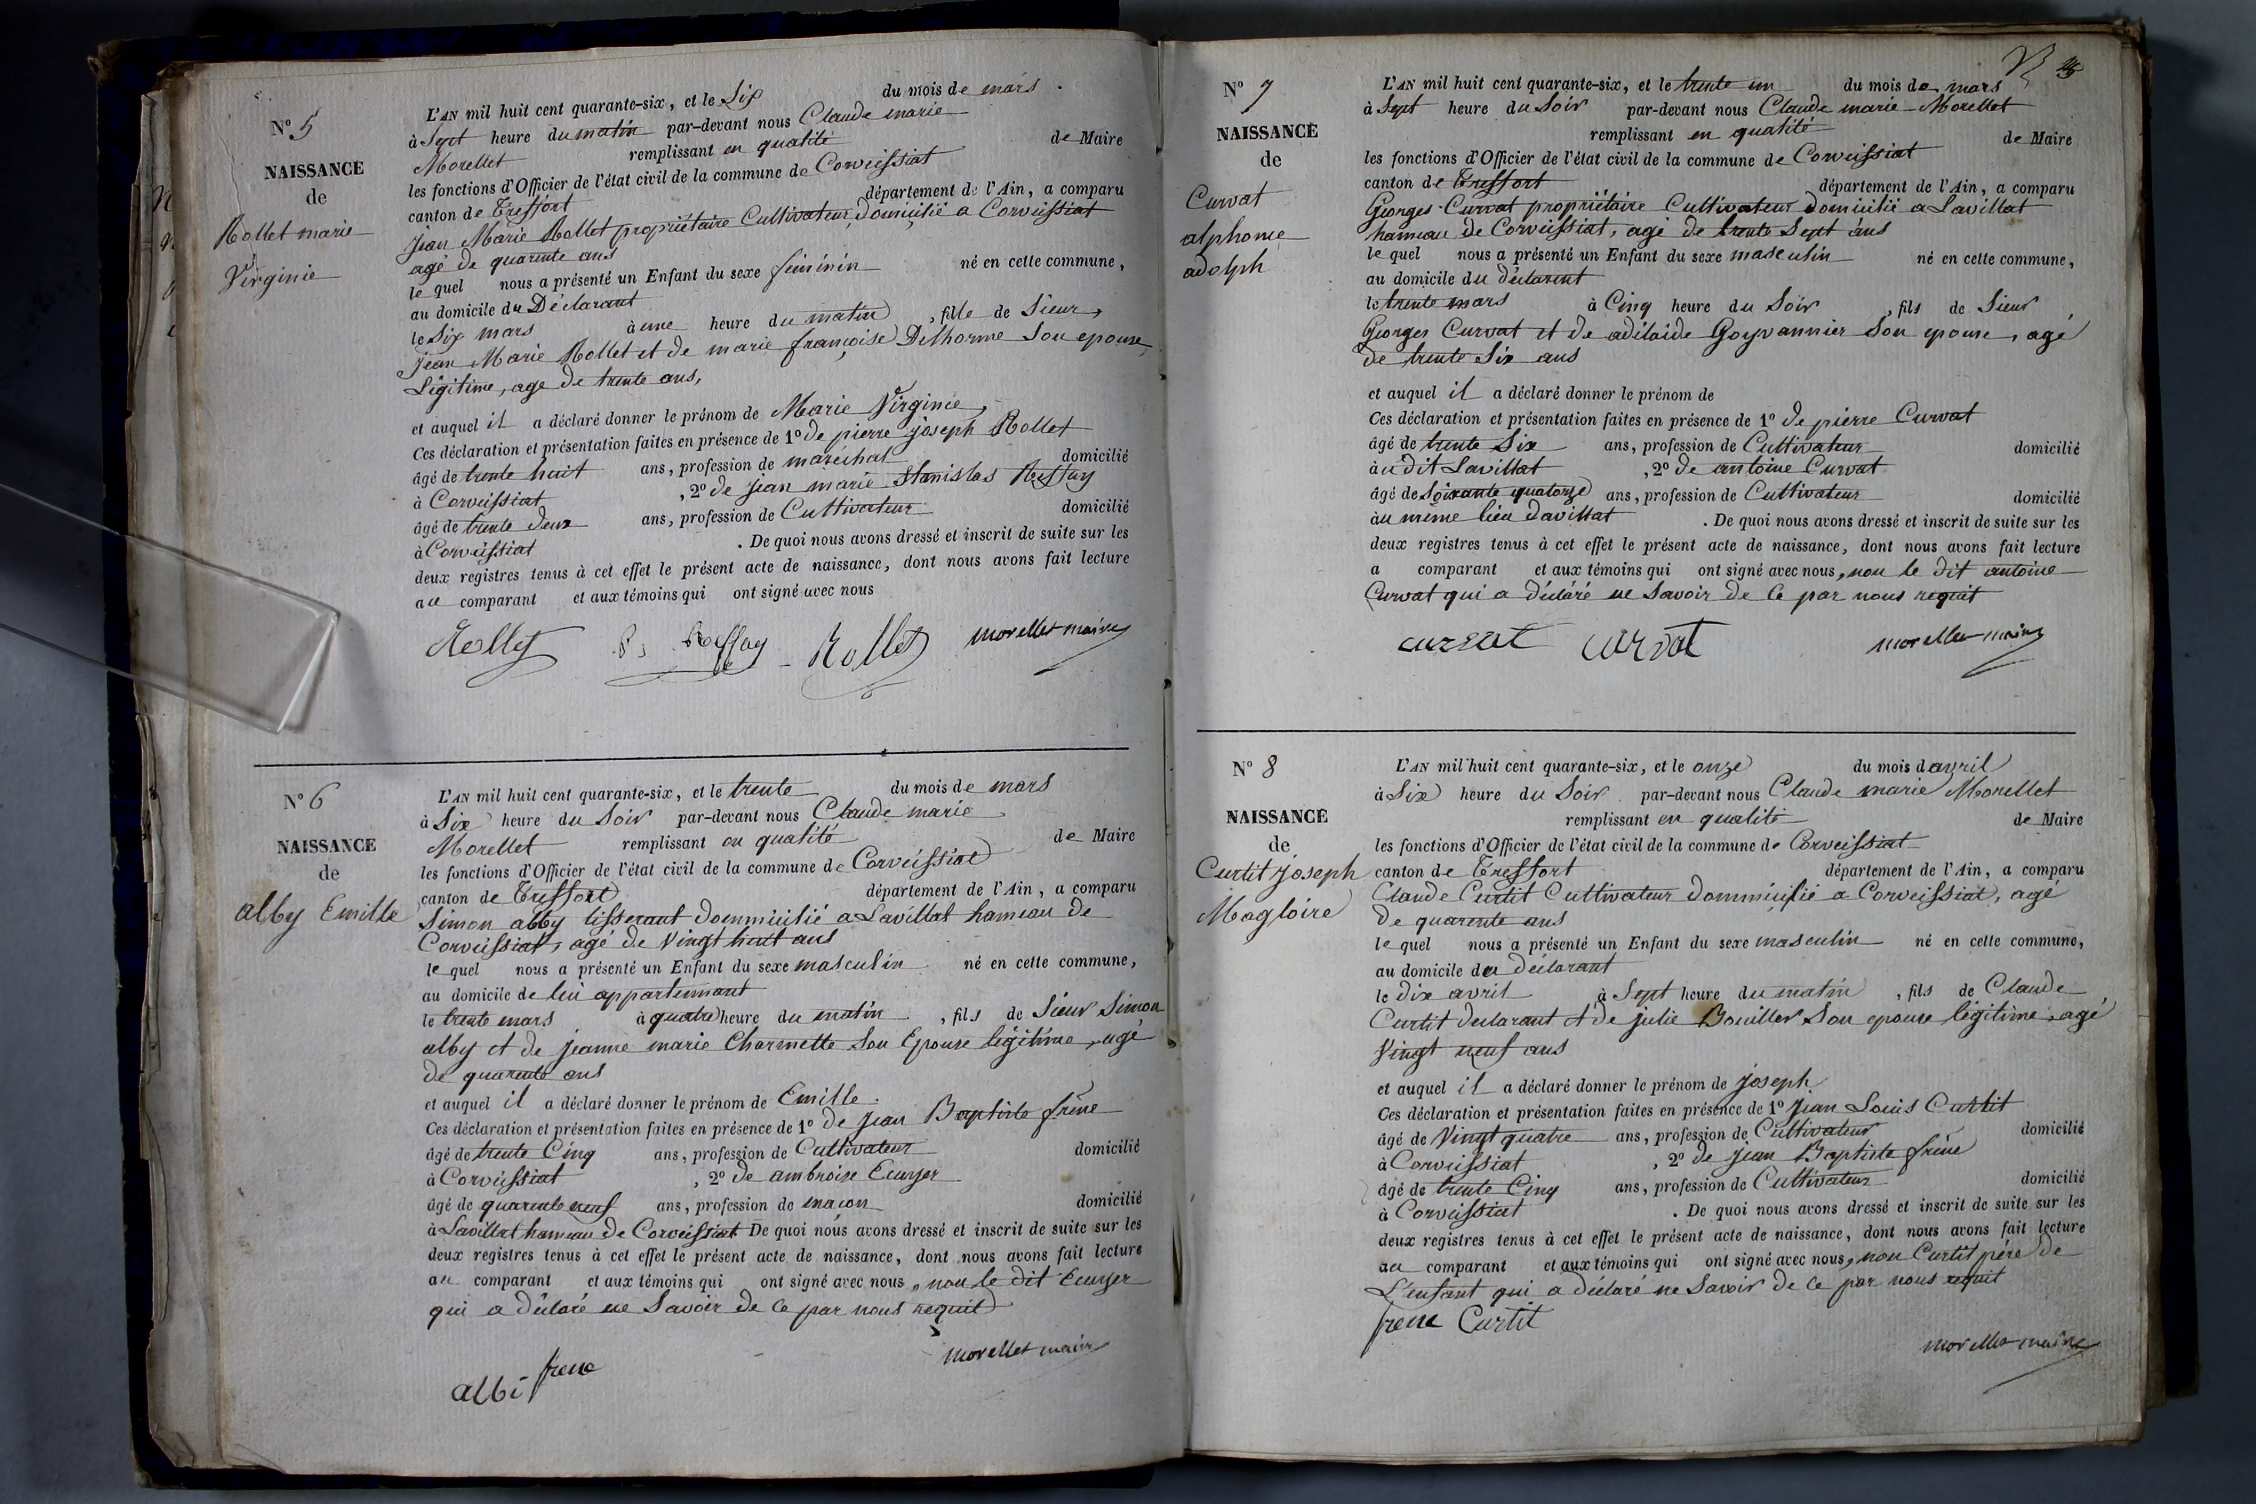 Nº 5
NAISSANCE
de
Rollet marie
Virginie
L'AN mil huit cent quarante-six, et le Six du mois de mars
à Sept heure du matin par-devant nous Claude marie
Morellet remplissant en qualité de Maire
les fonctions d'Officier de l'état civil de la commune de Corveissiat
canton de Treffort département de l'Ain, a comparu
Jean Marie Rollet propriétaire Cultivateur, Domicilié a Corveissiat
agé de quarente ans
le quel nous a présenté un Enfant du sexe féminin né en cette commune,
au domicile du Déclarant
le Six mars à une heure du matin, fille de Sieur
Jean Marie Rollet et de marie françoise Delhorme Son epouse
Légitime, age de trente ans,
et auquel il a déclaré donner le prénom de Marie Virginie
Ces déclaration et présentation faites en présence de 1º de pierre joseph Rollet
âgé de trente huit ans, profession de maréchal domicilié
à Corveissiat, 2º de jean marie Stanislas Ruffay
âgé de trente deux ans, profession de Cultivateur domicilié
à Corveissiat. De quoi nous avons dressé et inscrit de suite sur les
deux registres tenus à cet effet le présent acte de naissance, dont nous avons fait lecture
au comparant et aux témoins qui ont signé avec nous
Rollet Ruffay Rollet morellet maire
Nº 6
NAISSANCE
de
alby Emille
L'AN mil huit cent quarante-six, et le trente du mois de mars
à Six heure du Soir par-devant nous Claude marie
Morellet remplissant en qualité de Maire
les fonctions d'Officier de l'état civil de la commune de Corveissiat
canton de Treffort département de l'Ain, a comparu
Simon alby tisserant dommicilié a Lavillat hameau de
Corveissiat, agé de Vingt huit ans
le quel nous a présenté un Enfant du sexe masculin né en cette commune,
au domicile de lui appartenant
le trente mars à quatre heure du matin, fils de Sieur Simon
alby et de jeanne marie Charmette Son Epouse légitime, agé
de quarente ans
et auquel il a déclaré donner le prénom de Emille
Ces déclaration et présentation faites en présence de 1º de jean Baptiste frêne
âgé de trente Cinq ans, profession de Cultivateur domicilié
à Corveissiat, 2º de ambroise Ecuyer
âgé de quarente neuf ans, profession de macon domicilié
à Lavillat hameau de Corveissiat De quoi nous avons dressé et inscrit de suite sur les
deux registres tenus à cet effet le présent acte de naissance, dont nous avons fait lecture
au comparant et aux témoins qui ont signé avec nous, non le dit Ecuyer
qui a déclaré ne Savoir de ce par nous requit
albi frene morellet maire
Nº 7
NAISSANCE
de
Curvat
alphonse
adolph
L'AN mil huit cent quarante-six, et le trente un du mois de mars
à Sept heure du Soir par-devant nous Claude marie Morellet
remplissant en qualité de Maire
les fonctions d'Officier de l'état civil de la commune de Corveissiat
canton de Treffort département de l'Ain, a comparu
Georges Curvat propriétaire Cultivateur domicilié a Lavillat
hameau de Corveissiat, age de trente Sept ans
le quel nous a présenté un Enfant du sexe masculin né en cette commune,
au domicile du déclarent
le trente mars à Cinq heure du Soir, fils de Sieur
Georges Curvat et de adélaide Goyvannier Son epouse, agé
de trente Six ans
et auquel il a déclaré donner le prénom de
Ces déclaration et présentation faites en présence de 1º de pierre Curvat
âgé de trente Six ans, profession de Cultivateur domicilié
à u dit Lavillat, 2º de antoine Curvat
âgé de Soixante quatorze ans, profession de Cultivateur domicilié
à u même lieu davillat. De quoi nous avons dressé et inscrit de suite sur les
deux registres tenus à cet effet le présent acte de naissance, dont nous avons fait lecture
a comparant et aux témoins qui ont signé avec nous, non le dit antoine
Curvat qui a déclaré ne Savoir de ce par nous requit
curvat curvat morellet maire
Nº 8
NAISSANCE
de
Curtit joseph
Magloire
L'AN mil huit cent quarante-six, et le onze du mois d avril
à Six heure du Soir par-devant nous Claude marie Morellet
remplissant en qualité de Maire
les fonctions d'Officier de l'état civil de la commune de Corveissiat
canton de Treffort département de l'Ain, a comparu
Claude Curtit Cultivateur dommicilié a Corveissiat, agé
de quarente ans
le quel nous a présenté un Enfant du sexe masculin né en cette commune,
au domicile du déclarant
le dix avril à Sept heure du matin, fils de Claude
Curtit declarant et de julie Bouiller Son epouse légitime, agé
Vingt neuf ans
et auquel il a déclaré donner le prénom de joseph
Ces déclaration et présentation faites en présence de 1º jean Louis Curtit
âgé de Vingt quatre ans, profession de Cultivateur domicilié
à Corveissiat, 2º de jean Baptiste frêne
âgé de trente Cinq ans, profession de Cultivateur domicilié
à Corveissiat. De quoi nous avons dressé et inscrit de suite sur les
deux registres tenus à cet effet le présent acte de naissance, dont nous avons fait lecture
au comparant et aux témoins qui ont signé avec nous, non Curtit père de
L'enfant qui a déclaré ne Savoir de ce par nous requit
frene Curtit
morellet maire